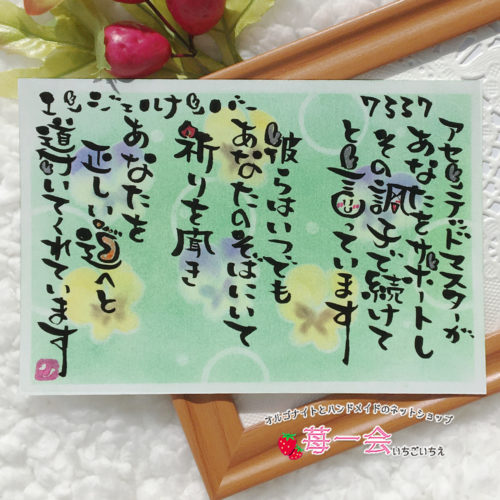 エンジェルナンバー 7337
アセンテッドマスターが、
あなたをサポートし
その調子で続けて
と言っています
彼らはいつでも
あなたのそばにいて
祈りを聞き
あなたを
正しい道へと
導いてくれています
オルゴナイトとハンドメイドのネットショップ
苺一会 いちごいちえ